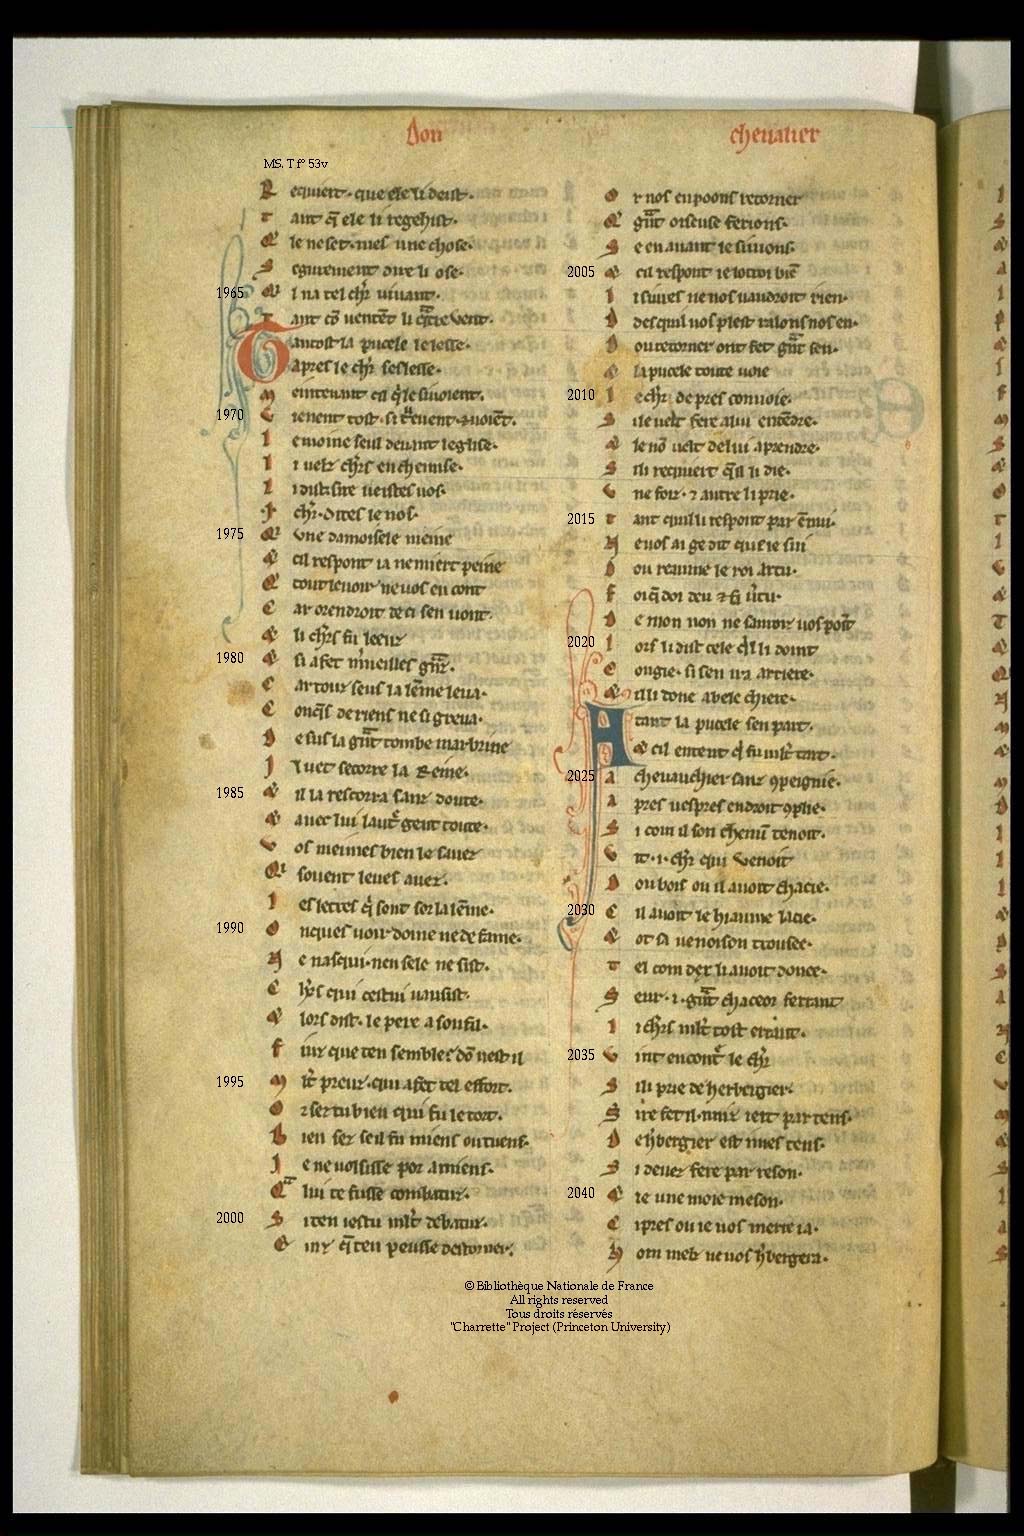 Don chevalier
MS. T fº 53v
R equiert · que ele li deist ·
T ant q̃ ele li regehist ·
Q̃ le ne set · mes une chose ·
S egurement dire li ose ·
1965 Q̃l na tel chr̃ vivant ·
T ant cõ ventẽt li q̃tre vent ·
Tantost la pucele le lesse ·
Tapres le chr̃ seslesse ·
M eintenant cil q̃ le sivoient ·
1970 V ienent tost · si
l e moine seul devant leglise ·
l i vielz chrs en chemise ·
l i dist · sire veistes vos ·
·I· chr̃ · dites le nos ·
1975 Q̃ une damoisele meine
& cil respont ia ne miert peine
Q̃ tout le voir ne vos en cont
C ar orendroit de ci sen vont ·
& li chr̃s fu leenz
1980 & si a fet mveilles
C ar touz seus la lẽme leva ·
C onq̃s de riens ne si greva ·
D esus la gñt tombe marbrine
I l vet secorre la Reine ·
1985 & il la rescorra sanz doute ·
& avec lui lautr̃ gent toute ·
V os meimes bien le savez
Qi sovent leues avez ·
l es letres q̃ sont sor la lẽme ·
1990 O nques voir dome ne de fame ·
N e nasqui · nen sele ne sist ·
C hrs qui cestui vausist ·
& lors dist · le pere a son fil ·
F iuz que ten semble · dõ nest il
1995 M lt preuz · qui a fet tel effort ·
O r sez tu bien qui fu le tort ·
B ien sez seil fu miens ou tuens ·
I e ne volsisse por amiens ·
Qa lui te fusses combatuz ·
2000 S i ten iestu mlt debatuz ·
E inz q̃ ten peusse destorner ·
O r nos en poons retorner
Q̃ gñt oiseuse ferions ·
S e en avant le sivions ·
2005 & cil respont ie lotroi biẽ
l i sivres ne nos vaudroit rien ·
D des quil vos plest ralons nos en ·
D ou retorner ont fet gñt sen ·
& la pucele toute voie
2010 l e chr̃ de pres convoie ·
S ile velt fere a lui entẽdre ·
& le nõ velt de lui aprendre ·
S ili requiert q̃l li die ·
V ne foiz · 7 autre li prie ·
2015 T ant quil li respont par ẽnui ·
N e vos ai ge dit que ie sui
D ou reaume le roi artu ·
F oi q̃ doi deu & sa v̾tu ·
D e mon non ne savroiz vos poĩt
2020 l ors li dist cele q̃l li doint
C ongie · si sen ira arriere ·
& il li done a bele chiere ·
A tant la pucele sen part ·
& cil entent q̃ fu mlt tart ·
2025 A chevauchier sanz 9peignie ·
A pres vespres endroit 9plie ·
S i com il son chemĩ tenoit ·
V it · i · chr̃ qui venoit
D ou bois ou il avoit chacie ·
2030 C il avoit le hiaume lacie ·
& ot sa venoison trousee ·
T el com dex li avoit donee ·
S eur · i · gñt chaceor ferrant
l i chr̃s mlt tost errant ·
2035 V int encontr̃ le chr̃
S ili prie de herbergier ·
S ire fet il · nuiz iert par tens ·
D e hb̃ergier est mes tens ·
S i devez fere par reson ·
2040 & ie une moie meson ·
C i pres ou ie vos metre ia ·
H om melz ne vos hb̃ergera ·
© Bibliothèque Nationale de France
All rights reserved
Tous droits réservés
"Charrette" Project (Princeton University)